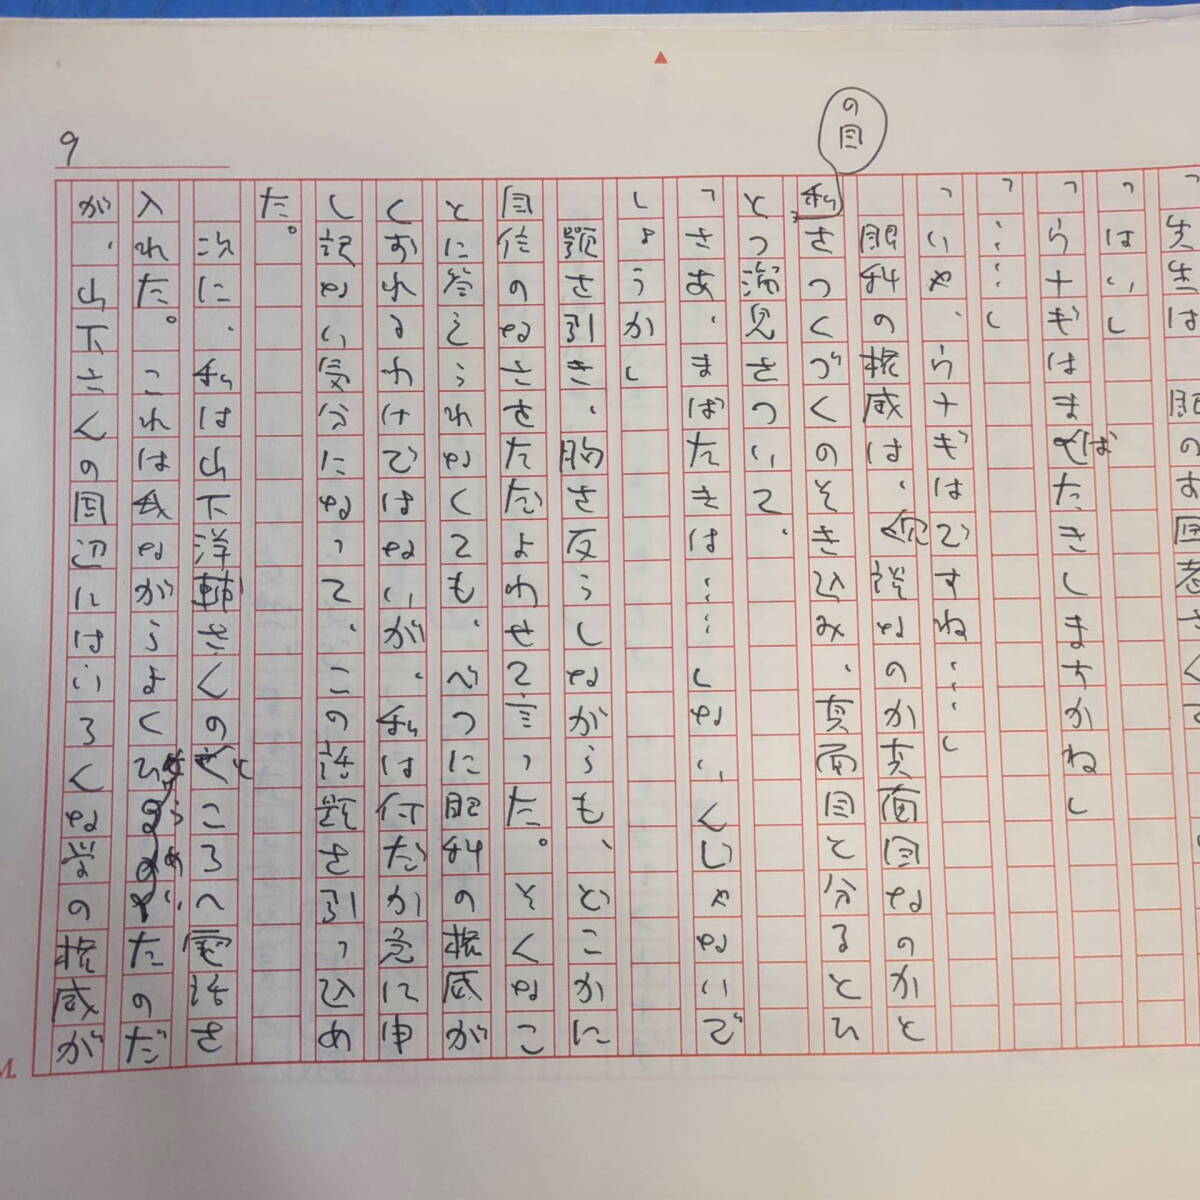 9
の目
「先生は 眼のお医者さん
「はい」
「ウナギはまばたきしますかね」
「……」
「いや、ウナギはですね……」
眼科の権威は、冗談なのか真面目なのかと
私をつくづくのぞき込み、真面目と分るとひ
とつ溜息をついて、
「さあ、まばたきは……しないんじゃないで
しょうか」
顎を引き、胸を反らしながらも、どこかに
自信のなさをただよわせて言った。そんなこ
とに答えられなくても、べつに眼科の権威が
くずれるわけではないが、私は何だか急に申
し訳ない気分になって、この話題を引っ込め
た。
次に、私は山下洋輔さんのところへ電話を
入れた。これは我ながらよくひらめいたのだ
が、山下さんの周辺にはいろんな学の権威が